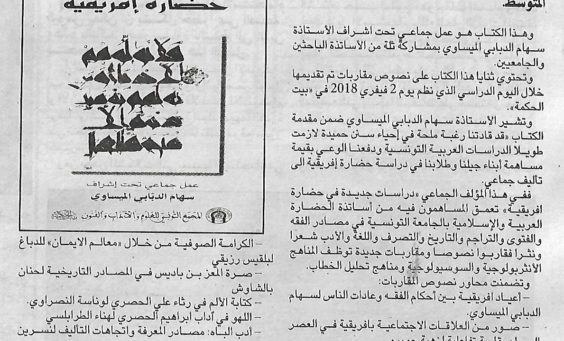 المتوسط.
وهذا الكتاب هو عمل جماعي تحت اشراف الأستاذة
سهام الدبابي الميساوي بمشاركة ثلة من الأساتذة الباحثين
والجامعيين.
وتحتوي ثنايا هذا الكتاب على نصوص مقاربات تم تقديمها
خلال اليوم الدراسي الذي نظم يوم 2 فيفري 2018 في «بيت
الحكمة».
وتشير الأستاذة سهام الدبابي الميساوي ضمن مقدمة
الكتاب «قد قادتنا رغبة ملحة في إحياء سنن حميدة لازمت
طويلا الدراسات العربية التونسية ودفعنا الوعي بقيمة
مساهمة أبناء جيلنا وطلابنا في دراسة حضارة إفريقية الى
تأليف جماعي.
ففي هذا المؤلف الجماعي «دراسات جديدة في حضارة
افريقية» تعمق المساهمون فيه من أساتذة الحضارة
العربية والإسلامية بالجامعة التونسية في مصادر الفقه
والفتوى والتراجم والتاريخ والتصرف واللغة والأدب شعرا
ونثرا فقاربوا نصوصا ومقاربات جديدة توظف المناهج
الأنثربولوجية والسوسيولوجية ومناهج تحليل الخطاب.
وتضمنت محاور نصوص المقاربات:
– أعياد افريقية بين أحكام الفقه وعادات الناس لسهام
الدبابي الميساوي.
– صور من العلاقات الاجتماعية بافريقية في العصر
حضارة إفريقية
عمل جماعي تحت إشراف
سهام الدبابي الميساوي
المجمع التونسي للعلوم والآداب والفنون
– الكرامة الصوفية من خلال «معالم الايمان» للدباغ
لبلقيس رزيقي
– صرة المعز بن باديس في المصادر التاريخية لحنان
بالشاوش
– كتابة الألم في رثاء علي الحصري لوناسة النصراوي.
– اللهو في آداب ابراهيم الحصري لهناء الطرابلسي
– أدب الباه: مصادر المعرفة واتجاهات التأليف لنسرين